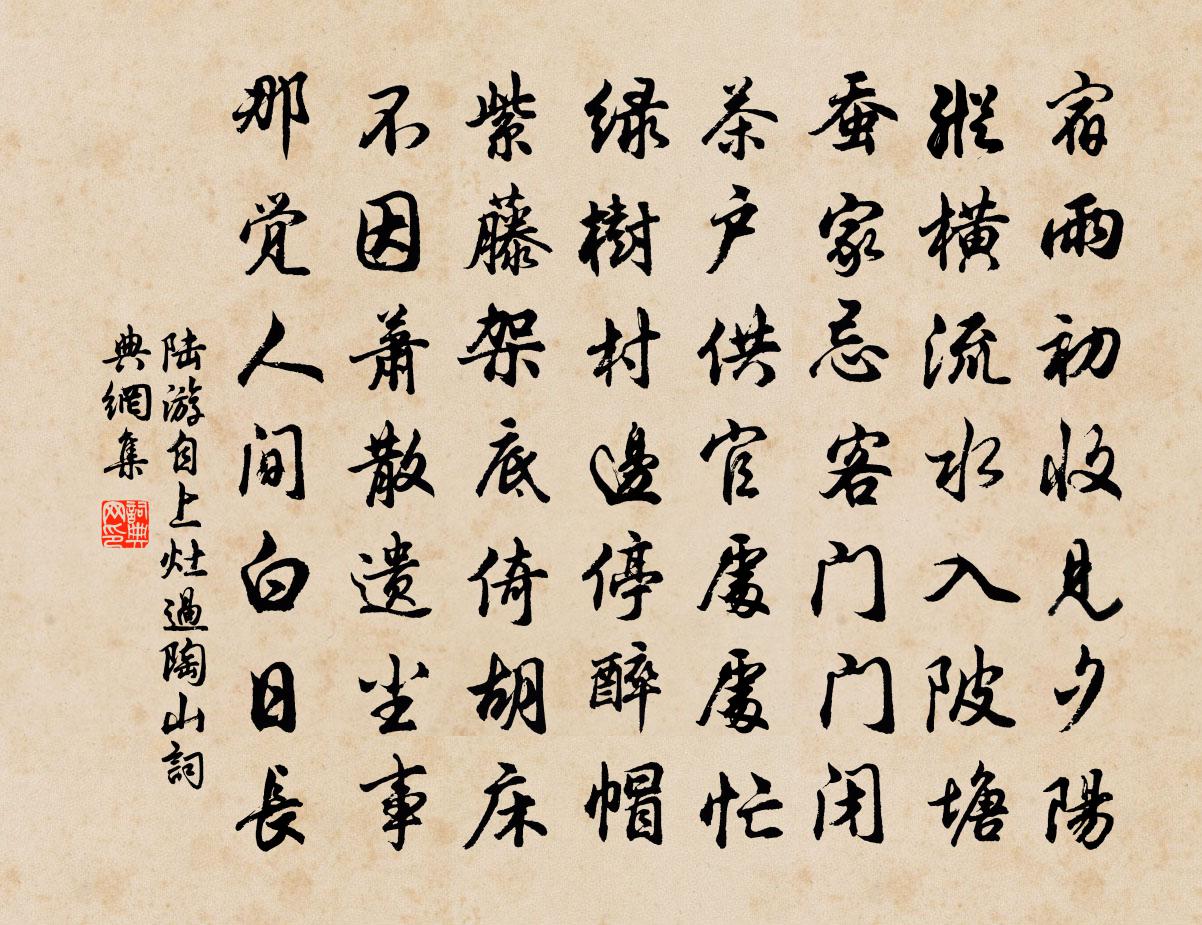 宿雨初收見夕陽
縱橫流水入陂塘
蚕家忌客门门闭
茶户供官處處忙
绿樹村邊停醉帽
紫藤架底倚胡床
不因萧散遗尘事
那觉人间白日長
陆游自上灶過陶山詞
典網集
詞典
网印